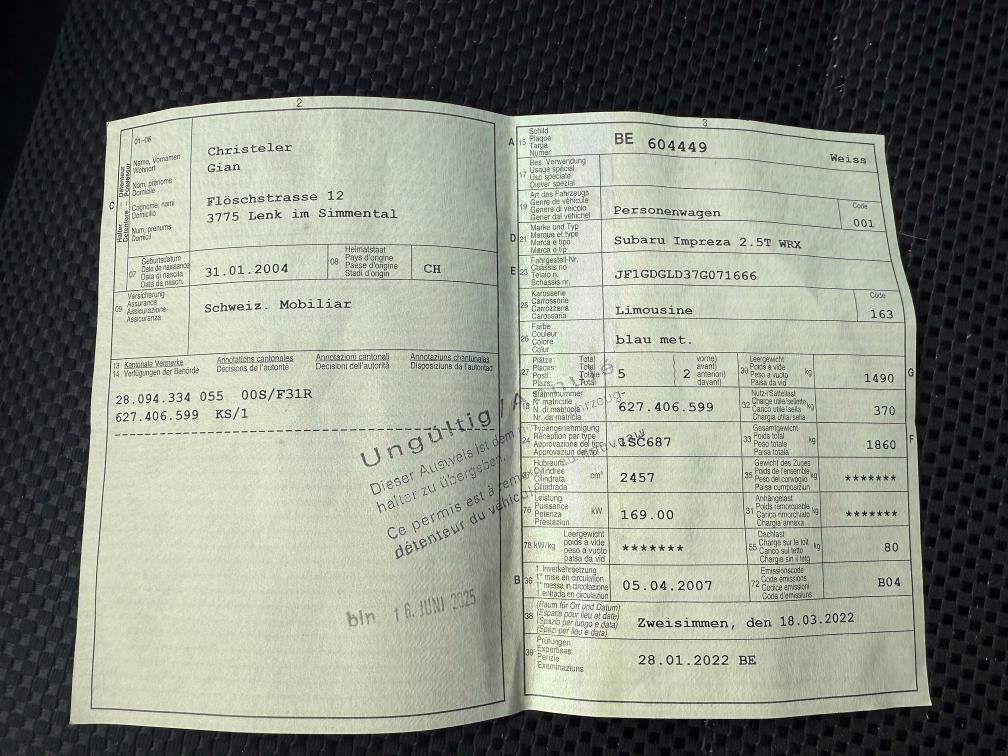 2
01-06
C
Halter – Détenteur
Detentore – Possessur
Name, Vornamen
Wohnort
Nom, prénoms
Domicile
Cognome, nomi
Domicilio
Num, prenums
Domicil
Christeler
Gian
Flöschstrasse 12
3775 Lenk im Simmental
07
Geburtsdatum
Date de naissance
Data di nascita
Data da nasch.
31.01.2004
08
Heimatstaat
Pays d'origine
Paese d'origine
Stadi d'origin
CH
09
Versicherung
Assurance
Assicurazione
Assicuranza
Schweiz. Mobiliar
13 Kantonale Vermerke
14 Verfügungen der Behörde
Annotations cantonales
Décisions de l'autorité
Annotazioni cantonali
Decisioni dell'autorità
Annotaziuns chantunalas
Disposiziuns da l'autoritad
28.094.334 055 00S/F31R
627.406.599 KS/1
Ungültig / Annulé
Dieser Ausweis ist dem
halter zu übergeben.
Ce permis est à
détenteur du véhicule
bln 16. JUNI 2025
3
A 15
Schild
Plaque
Targa
Numer
BE 604449
Weiss
17
Bes. Verwendung
Usage spécial
Uso speciale
Diever spezial
19
Art des Fahrzeugs
Genre de véhicule
Genere di veicolo
Gener dal vehichel
Personenwagen
Code
001
D 21
Marke und Typ
Marque et type
Marca e tipo
Marca e tip
Subaru Impreza 2.5T WRX
E 23
Fahrgestell-Nr.
Châssis no
Telaio n.
Schassis nr.
JF1GDGLD37G071666
25
Karosserie
Carrosserie
Carrozzeria
Carossaria
Limousine
Code
163
26
Farbe
Couleur
Colore
Colur
blau met.
27
Plätze: Total
Places: Total
Posti: Totale
Plazs: Total
5
2
vorne)
avant)
anteriori)
davant)
30
Leergewicht
Poids à vide
Peso a vuoto
Paisa da vid
kg
1490
G
18
Stammnummer
N° matricule
N. di matricola
Nr. da matricla
627.406.599
32
Nutz-/Sattellast
Charge utile/sellette
Carico utile/sella
Chargia utila/sella
kg
370
24
Typengenehmigung
Réception par type
Approvazione del tipo
Approvaziun dal tip
1SC687
33
Gesamtgewicht
Poids total
Peso totale
Paisa totala
kg
1860
F
Hubraum
Cylindrée
Cilindrata
Cilindrada
cm³
2457
35
Gewicht des Zuges
Poids de l'ensemble
Peso del convoglio
Paisa cumposiziun
kg
*******
76
Leistung
Puissance
Potenza
Prestaziun
kW
169.00
31
Anhängelast
Poids remorquable
Carico rimorchiato
Chargia annexa
kg
*******
78 kW/kg
Leergewicht
poids à vide
peso a vuoto
paisa da vid
*******
55
Dachlast
Charge sur le toit
Carico sul tetto
Chargia sin il tetg
kg
80
B 36
1. Inverkehrsetzung
1re mise en circulation
1a messa in circolazione
1. entrada en circulaziun
05.04.2007
72
Emissionscode
Code émissions
Codice emissioni
Code d'emissiuns
B04
38
(Raum für Ort und Datum)
(Espace pour lieu et date)
(Spazio per luogo e data)
(Spazi per lieu e data)
Zweisimmen, den 18.03.2022
39
Prüfungen
Expertises
Perizie
Examinaziuns
28.01.2022 BE